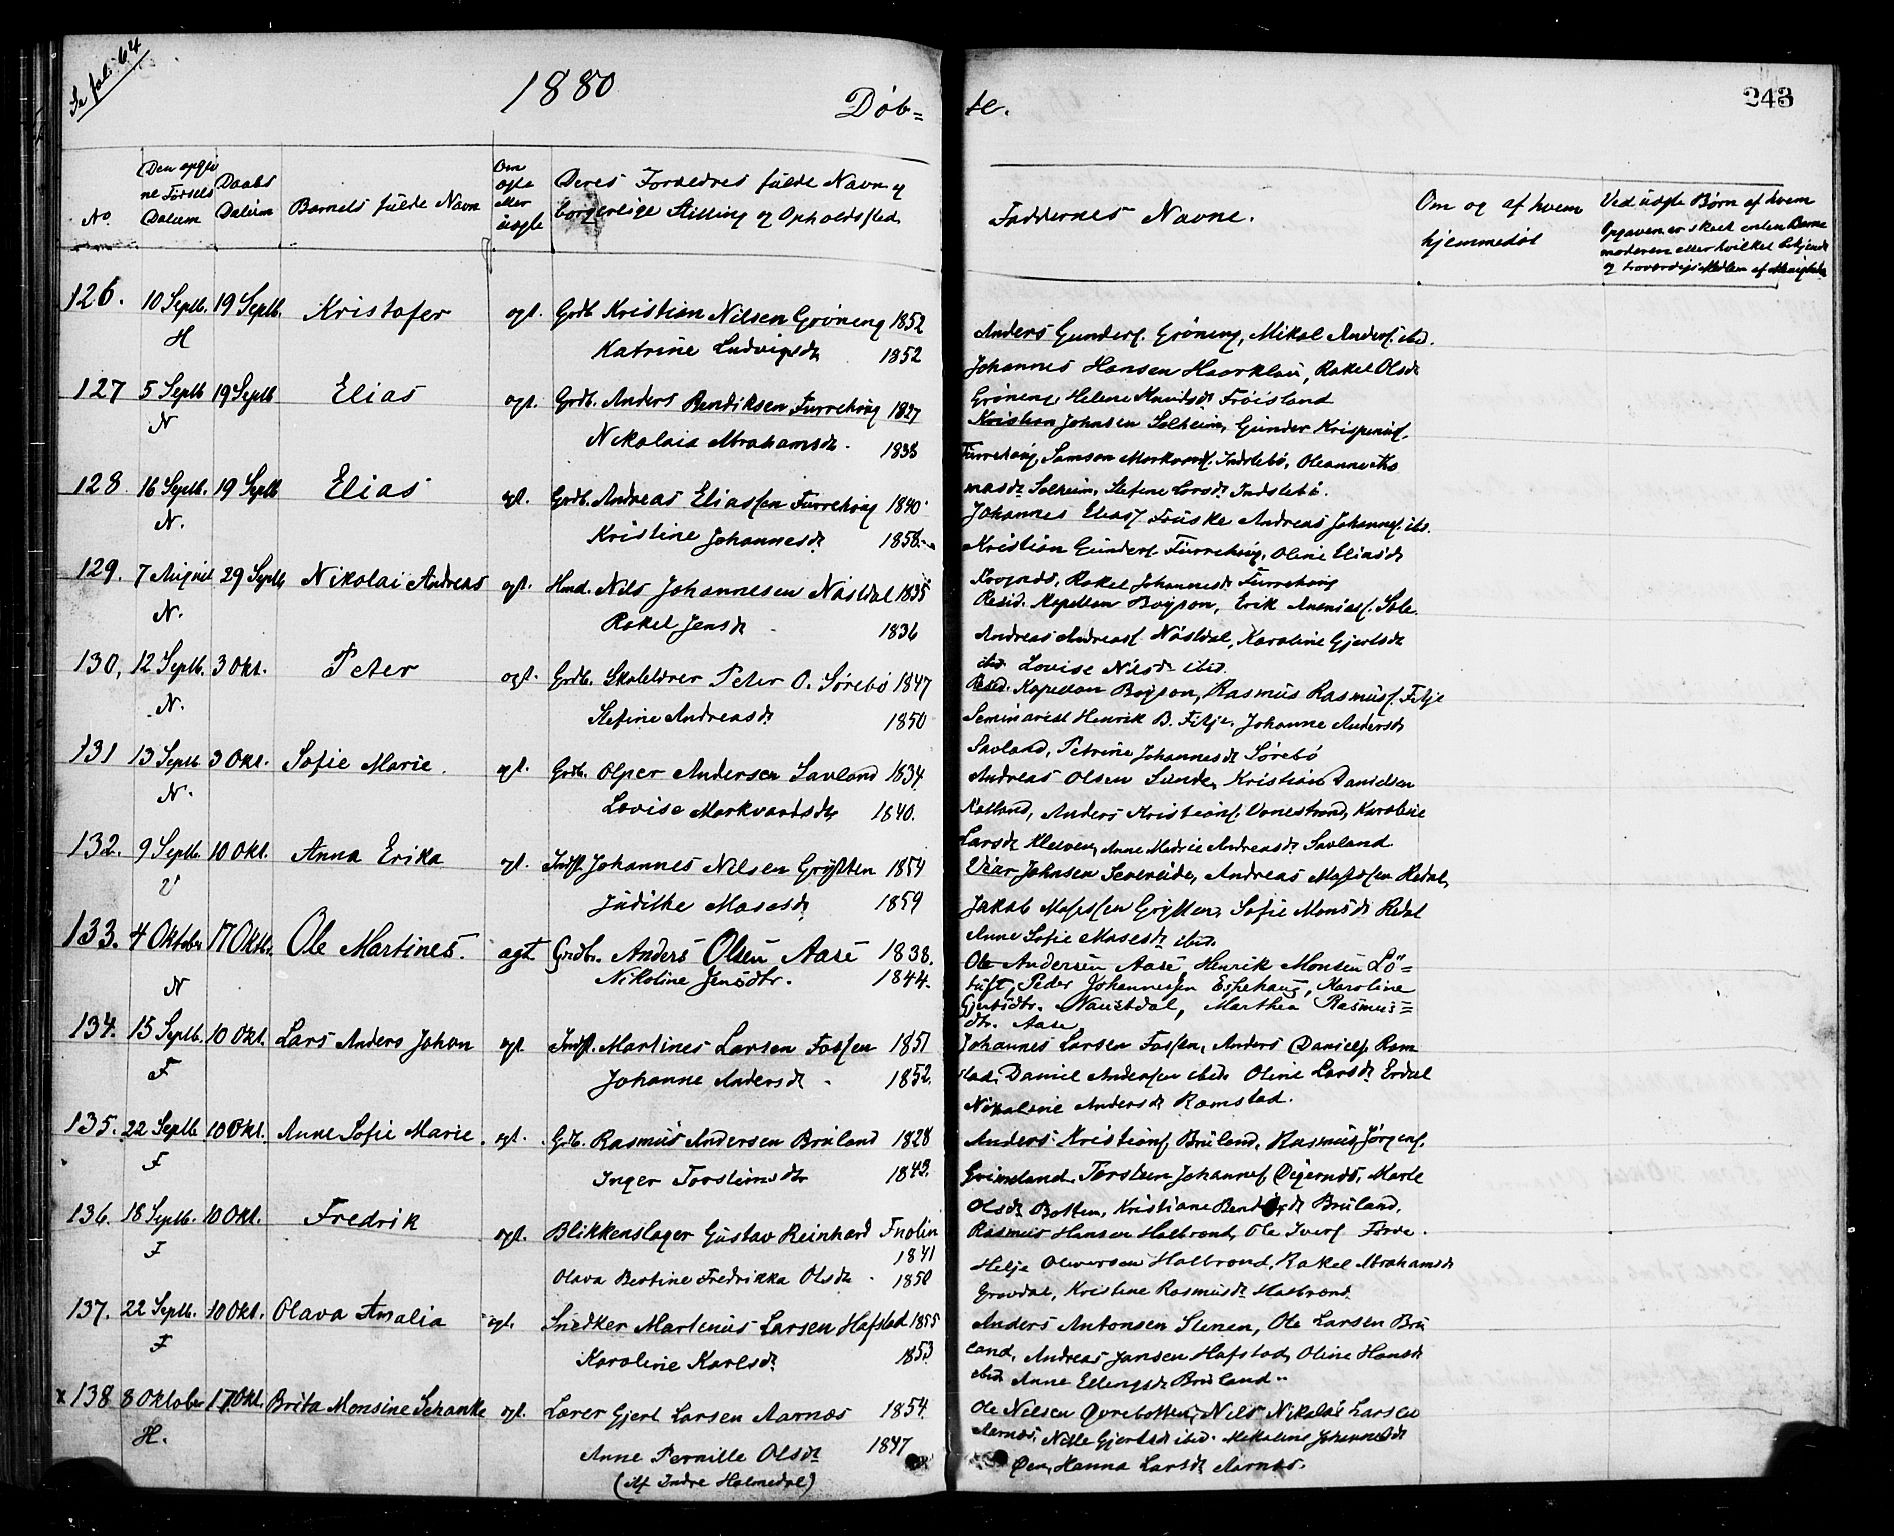 Se fol. 64
1880
Døb=
te.
243
No
Den opgiv
ne Fødsels
Datum
Daabs
Datum
Barnets fulde Navn
Om
ægte
eller
uægte
Deres Forældres fulde Navn og
borgerlige Stilling og Opholdssted
Faddernes Navne.
Om og af hvem
hjemmedøbt
Ved uægte Børn af hvem
Opgaven er skeet enten Barne
moderen eller hvilket bekjendt
og troværdigt Medlem af Menigheden
126. 10 Septb. 19 Septb. Kristofer ægt. Grdb. Kristian Nilsen Grøning 1852
H Katrine Ludvigsdr 1852
Anders Gunders. Grøning, Mikal Anders. ibd.
Johannes Hansen Haarklau, Rakel Olsdr
Grøning, Helene Knudsdr Frøisland
127 5 Septb 19 Septb Elias ægt. Grdb. Anders Bendiksen Furrehøig 1827
N Nikolaia Abrahamsdr. 1838
Kristian Johnsen Solheim, Gunder Krispinus.
Furrehøig, Samson Markvards. Indrebø, Oleanne Tho
masdr Solheim, Stefine Larsdr Indrebø.
128 16 Septb. 19 Septb Elias ægt. Grdb. Andreas Eliassen Furrehøig 1840
N. Kristine Johannesdr 1858.
Johannes Elias. Fruske Andreas Johannes. ibd.
Kristian Gunders. Furrehøig, Oline Eliasdr
Rakel Johannesdr Furrehøig
129. 7 August 29 Septb. Nikolai Andreas ægt. Hmd. Nils Johannesen Nåsdal 1835
N. Rakel Jensdr 1836
Resid. Kapellan Bøyson, Erik Ananias. Sole
Andreas Andreas. Nåsdal, Karoline Gjertsdr
ibd. Lovise Nilsdr ibid.
130, 12 Septb. 3 Okt. Peter ægt. Grdb. Skolelærer Peter O. Sørebø 1847
N. Stefine Andreasdr. 1850
Resid. Kapellan Bøyson, Rasmus Rasmus. Fitje
Seminarist Henrik B. Fitje. Johanne Andersdr
Savland, Petrine Johannesdr Sørebø
131 13 Septb 3 Okt. Sofie Marie. ægt. Grdb. Olper Andersen Savland 1834
N. Lovise Markvardsdr 1840.
Andreas Olsen Sunde, Kristian Danielsen
Anders Kristians. Vonestrand, Karoline
Larsdr Kleiven, Anne Marie Andreasdr. Savland.
132. 9 Septb. 10 Okt. Anna Erika ægt. Indst. Johannes Nilsen Grytten 1854
V Judithe Mosesdr 1859
Vear Johnsen Severeide, Andreas Mosessen Redal,
Jakob Mosessen Grytten, Sofie Monsdr Redal
Anne Sofie Mosesdr ibid.
133. 4 Oktober 17 Oktb. Ole Martines. ægt Grdbr. Anders Olsen Aase 1838.
N Nikoline Jensdtr. 1844.
Ole Andersen Aase, Henrik Monsen Lø=
tuft, Peder Johannessen Espehaug, Karoline
Gjertsdtr. Naustdal, Marthea Rasmus=
dtr. Aase
134. 15 Septb. 10 Okt. Lars Anders Johan ægt. Indst. Martines Larsen Fossen 1851
F Johanne Andersdr. 1852.
Johannes Larsen Fossen, Anders Daniels. Ram
stad, Daniel Andersen ibid. Oline Larsdr Erdal
Nikoline Andersdr Ramstad.
135. 22 Septb 10 Okt. Anne Sofie Marie. ægt. Grdb. Rasmus Andersen Bruland 1828
F Inger Torsteinsdtr 1843.
Anders Kristians. Bruland, Rasmus Jørgens.
Grimeland, Torsteen Johannes. Øigernæs, Marte
Olsdr Botten, Kristiane Bendiksdr Bruland.
136. 18 Septb. 10 Okt. Fredrik ægt. Blikkenslager Gustav Reinhard Fnolin
1841
F Olava Bertine Fredrikka Olsdr. 1850
Rasmus Hansen Halbrend, Ole Ivers. Førde.
Helje Oliversen Halbrend, Rakel Abrahamsdr
Gravdal, Kristine Rasmusdr. Halbrend.
137. 22 Septb. 10 Okt. Olava Amalia ægt. Snedker Martinus Larsen Hafstad 1855
F Karoline Karlsdr. 1853.
Anders Antonsen Stenen, Ole Larsen Bru
land, Andreas Jansen Hafstad, Oline Hansdr
ibid. Anne Ellingsdr Bruland.
x 138 8 Oktober 17 Okt. Brita Monsine Schanke ægt. Lærer Gjert Larsen Aarnæs 1854.
H. Anne Pernille Olsdr 1847
(Af Indre Holmedal)
Ole Nilsen Øvrebotten, Nils Nikolai Larsen
Aarnæs, Nille Gjertsdr ibid. Mikaline Johannesdr
Øen, Hanna Larsdr Aarnæs.